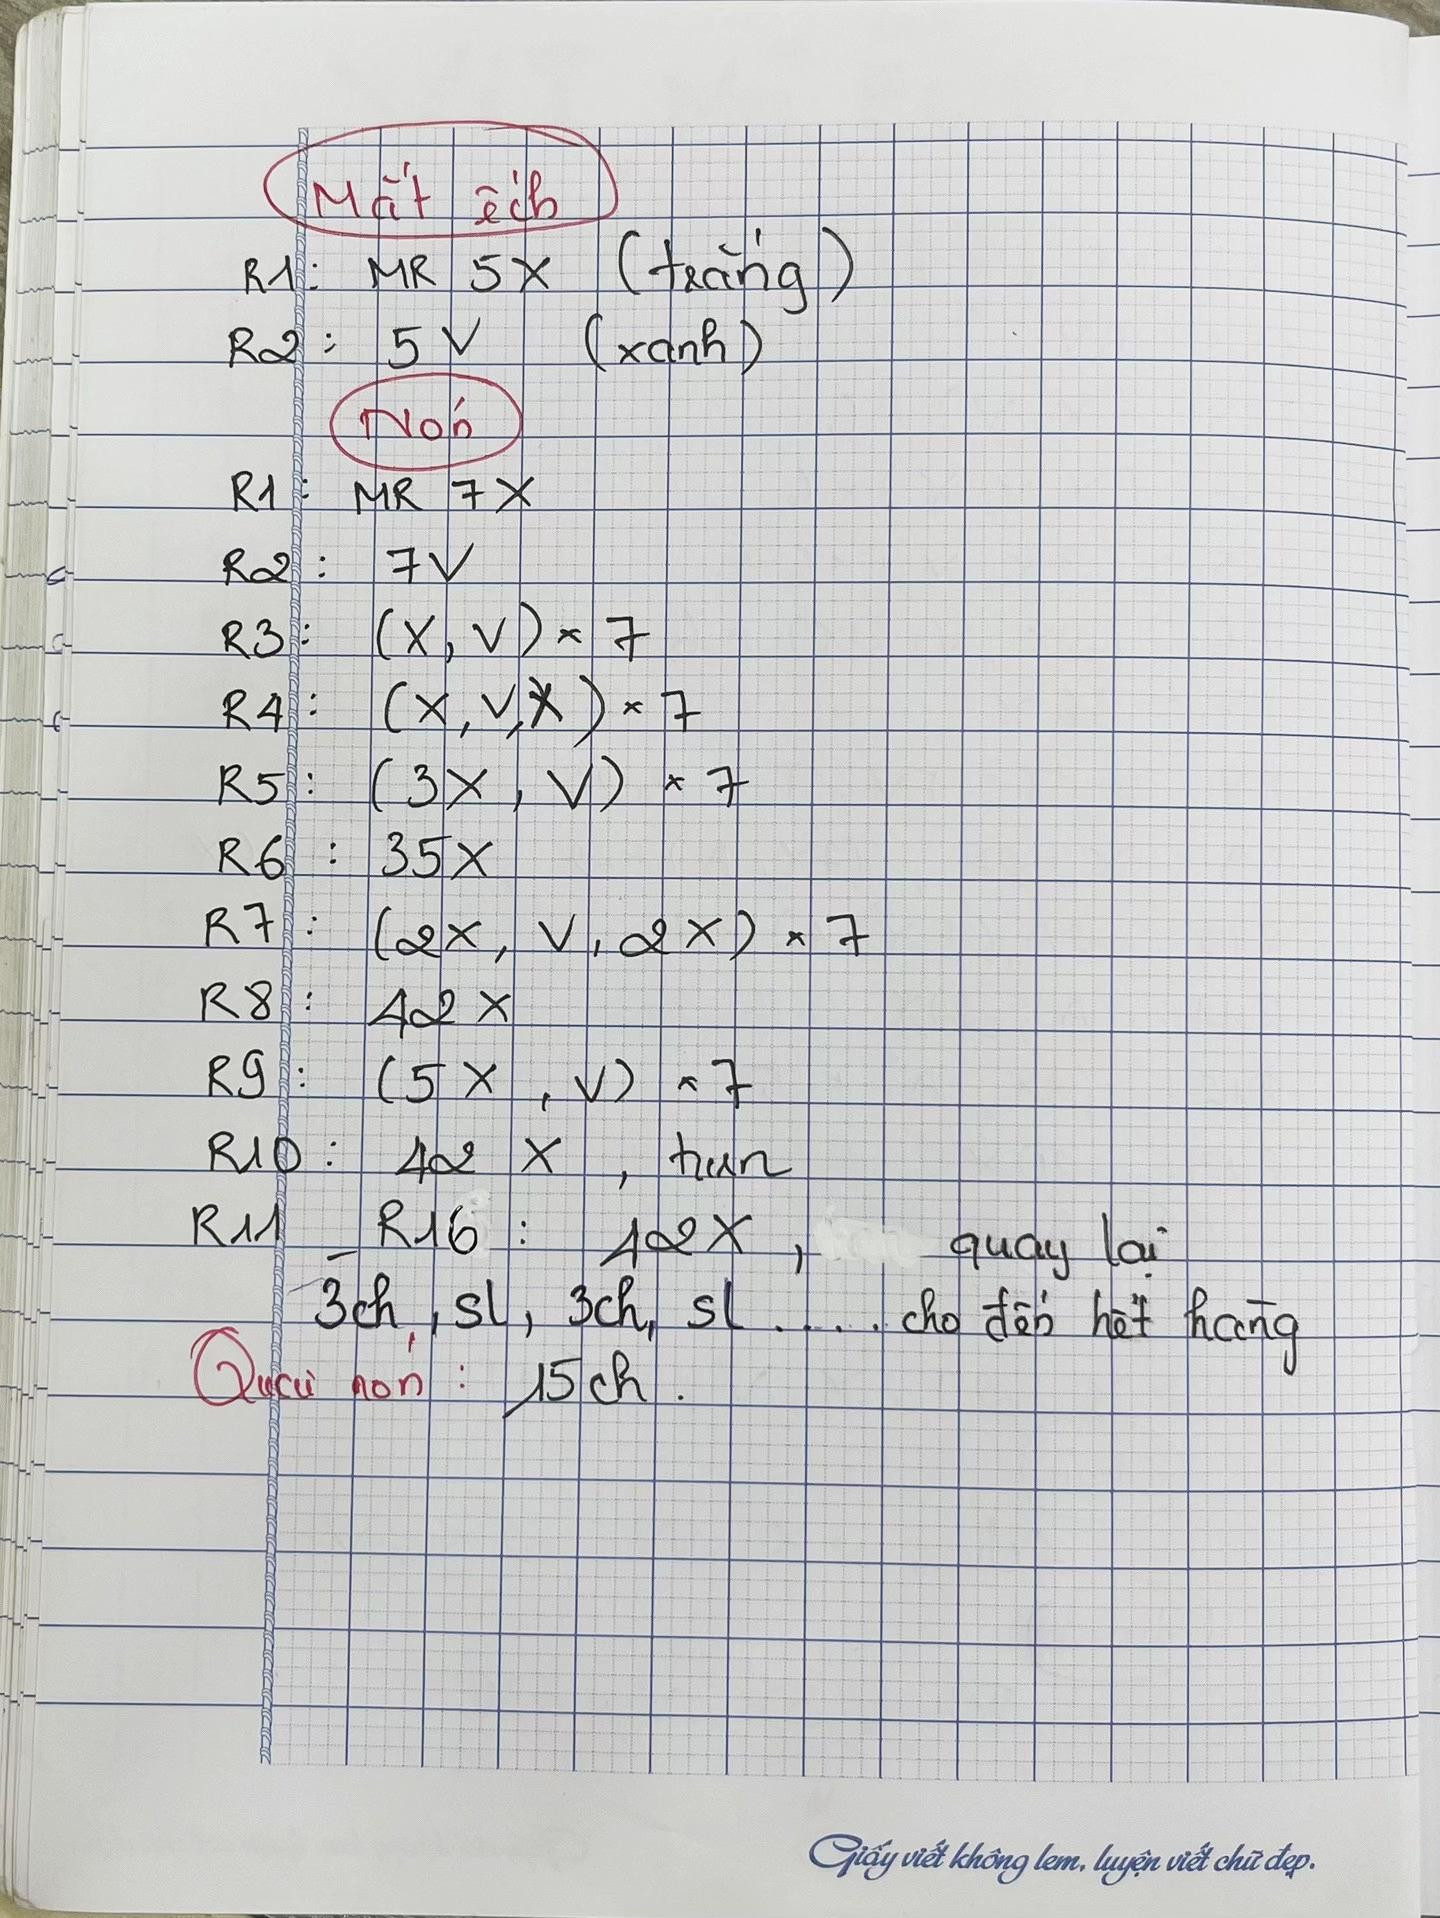 Mắt ếch
R1: MR 5X (trắng)
R2: 5V (xanh)
Nón
R1: MR 7X
R2: 7V
R3: (X, V) × 7
R4: (X, V, X) × 7
R5: (3X, V) × 7
R6: 35X
R7: (2X, V, 2X) × 7
R8: 42X
R9: (5X, V) × 7
R10: 42X, hun
R11 – R16: 42X, quay lại
3ch, sl, 3ch, sl ..... cho đến hết hàng
Quai nón: 15ch.
Giấy viết không lem, luyện viết chữ đẹp.